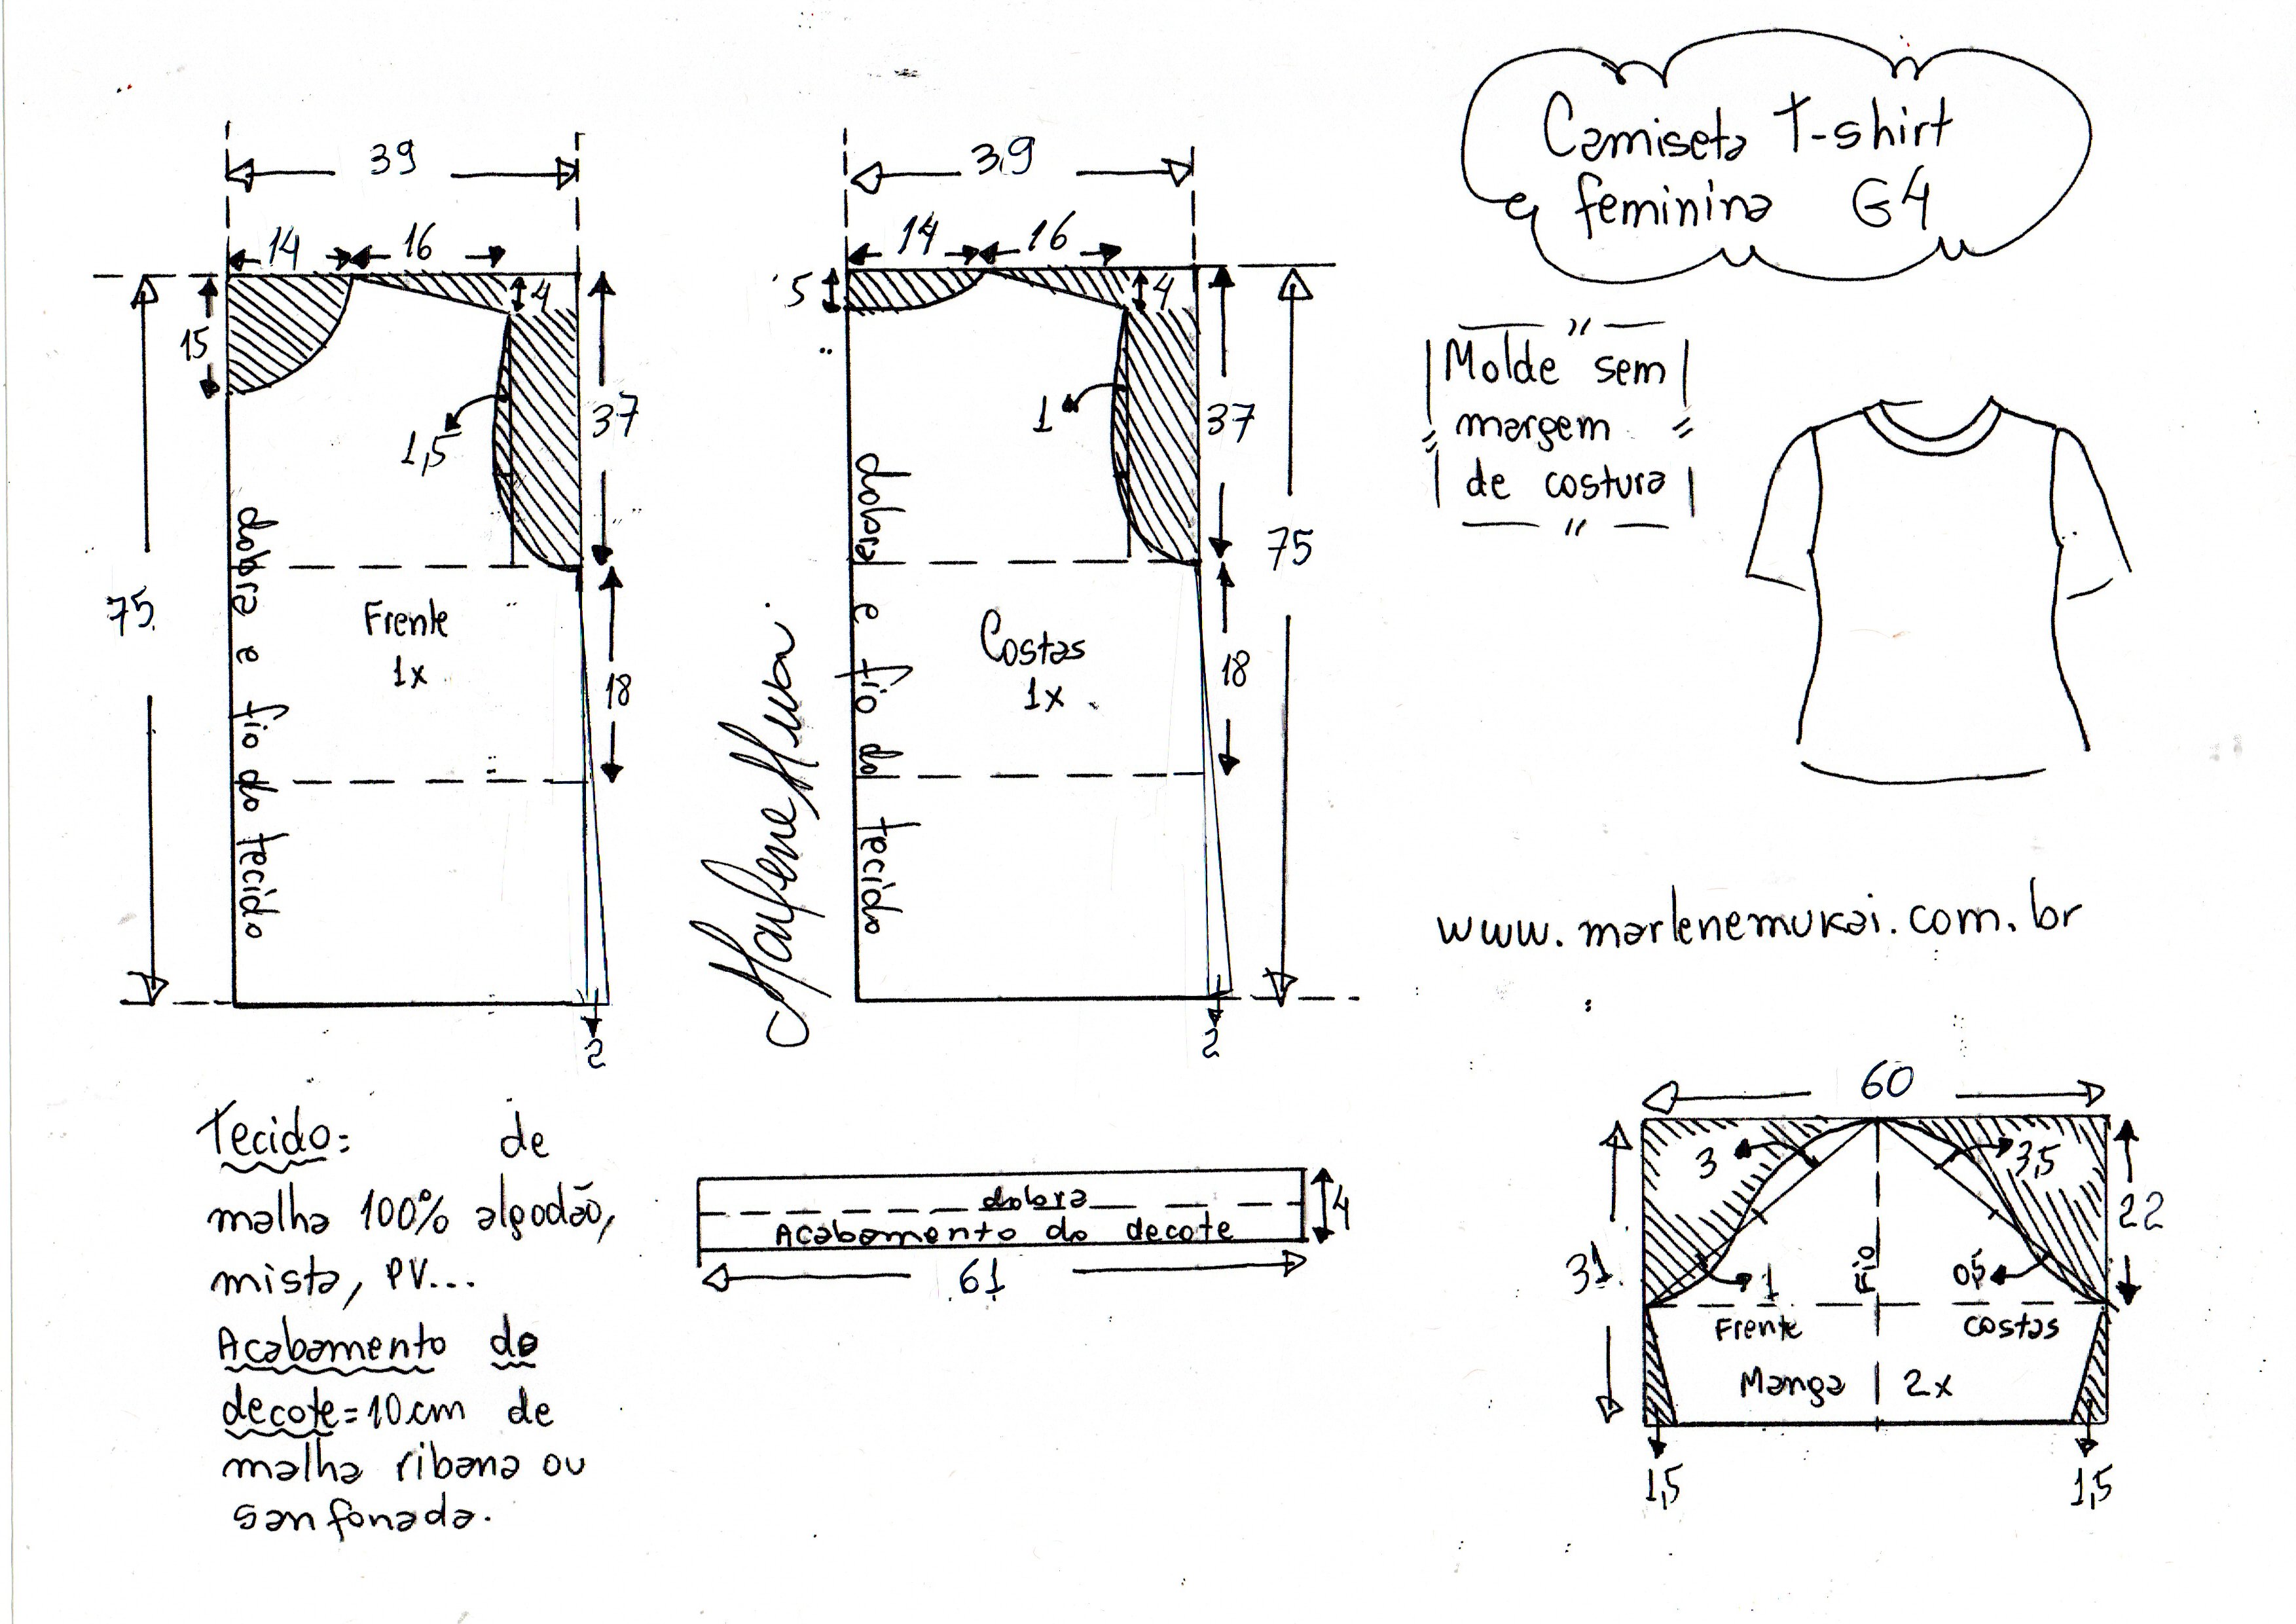 Camiseta T-shirt
feminina G4
Molde sem
margem
de costura
www.marlenemukai.com.br
39
14 16
4
15
37
1,5
75
dobra e fio do tecido
Frente
1x
18
2
39
14 16
5
4
1
37
75
dobra e fio do tecido
Costas
1x
18
2
Marlene Mukai
Tecido: de
malha 100% algodão,
mista, PV...
Acabamento do
decote=10cm de
malha ribana ou
sanfonada.
dobra
Acabamento do decote
4
61
60
3
3,5
22
31
1
Fio
0,5
Frente
costas
Manga 2x
1,5
1,5